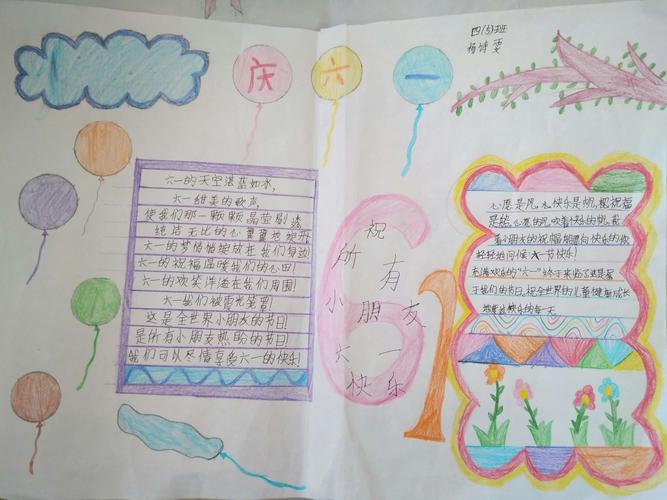 四(5)班
杨诗雯
庆六一
六一的天空湛蓝如水,
六一甜美的歌声,
使我们那一颗颗晶莹剔透
纯洁无比的心翼翼地绽开
六一的梦悄悄绽放在我们身边!
六一的祝福温暖我们的心田!
六一的欢笑洋溢在我们周围!
六一我们被雷光笼罩!
这是全世界小朋友的节日!
是所有小朋友热盼的节日!
我们可以尽情享受六一的快乐!
祝
所有
小朋友
六一
快乐
61
心愿是风,快乐是帆,祝福
是船,心愿的风吹着快乐的帆,载
着小朋友的祝福船飘向快乐的你
轻轻地问候:六一节快乐!
充满欢乐的“六一”终于来临了,这是属
于我们的节日,祝全世界的儿童健康成长
快乐的每一天